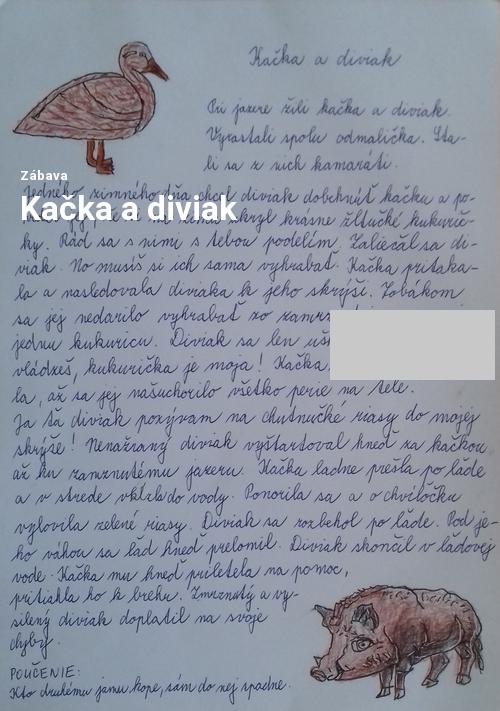 Kačka a diviak
Pri jazere žili kačka a diviak.
Vyrastali spolu odmalička. Sta-
li sa z nich kamaráti.
Zábava
Jedného zimného dňa chcel diviak dobehnúť kačku a po-
Kačka a diviak
skryl krásne žltučké kukurič-
ky. Rád sa s nimi s tebou podelím. Zaliečal sa di-
viak. No musíš si ich sama vyhrabať. Kačka pritaka-
la a nasledovala diviaka k jeho skrýši. Zobákom
sa jej nedarilo vyhrabať zo
jednu kukuricu. Diviak sa len
vládzeš, kukurička je moja! Kačka
la, až sa jej našuchorilo všetko perie na tele.
Ja ťa diviak pozývam na chutnučké riasy do mojej
skrýše! Nenažraný diviak vyštartoval hneď za kačkou
až ku zamrznutému jazeru. Kačka ladne prešla po ľade
a v strede vkĺzla do vody. Ponorila sa a o chvíľočku
vylovila zelené riasy. Diviak sa rozbehol po ľade. Pod je-
ho váhou sa ľad hneď prelomil. Diviak skončil v ľadovej
vode. Kačka mu hneď priletela na pomoc,
pritiahla ho k brehu. Zmrznutý a vy-
silený diviak doplatil na svoje
chyby.
POUČENIE:
Kto druhému jamu kope, sám do nej spadne.